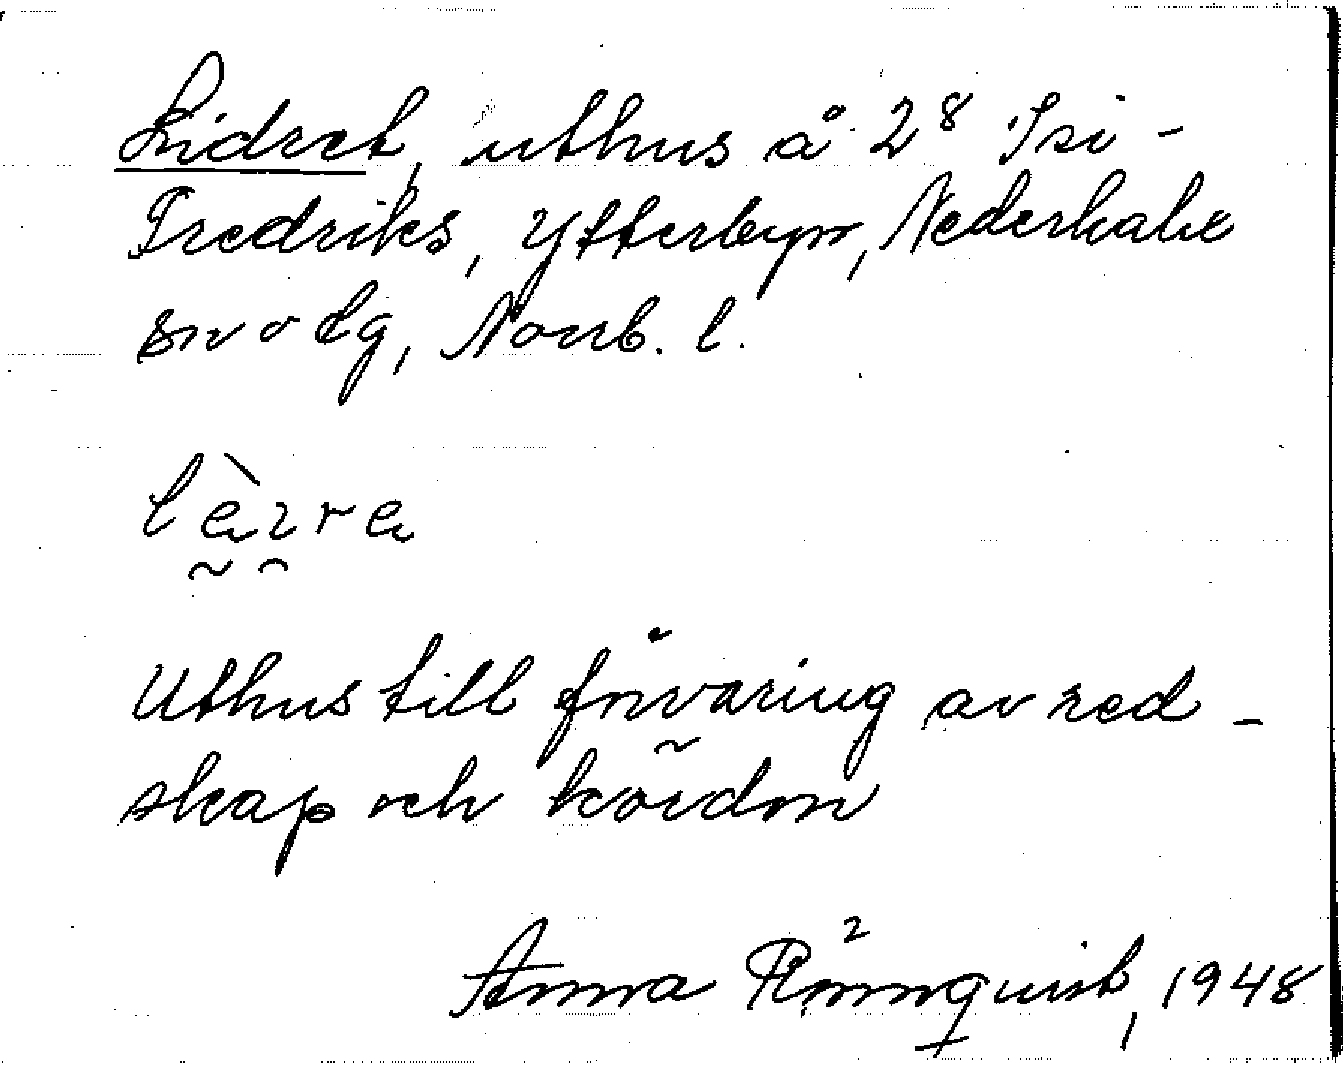 Lidret, uthus å 2⁸ Isi-
Fredriks, Ytterbyn, Nederkalix
sn o lg, Norrb. l.
Uthus till förvaring av red-
skap och kördon
Anna Rönnquist, 1948